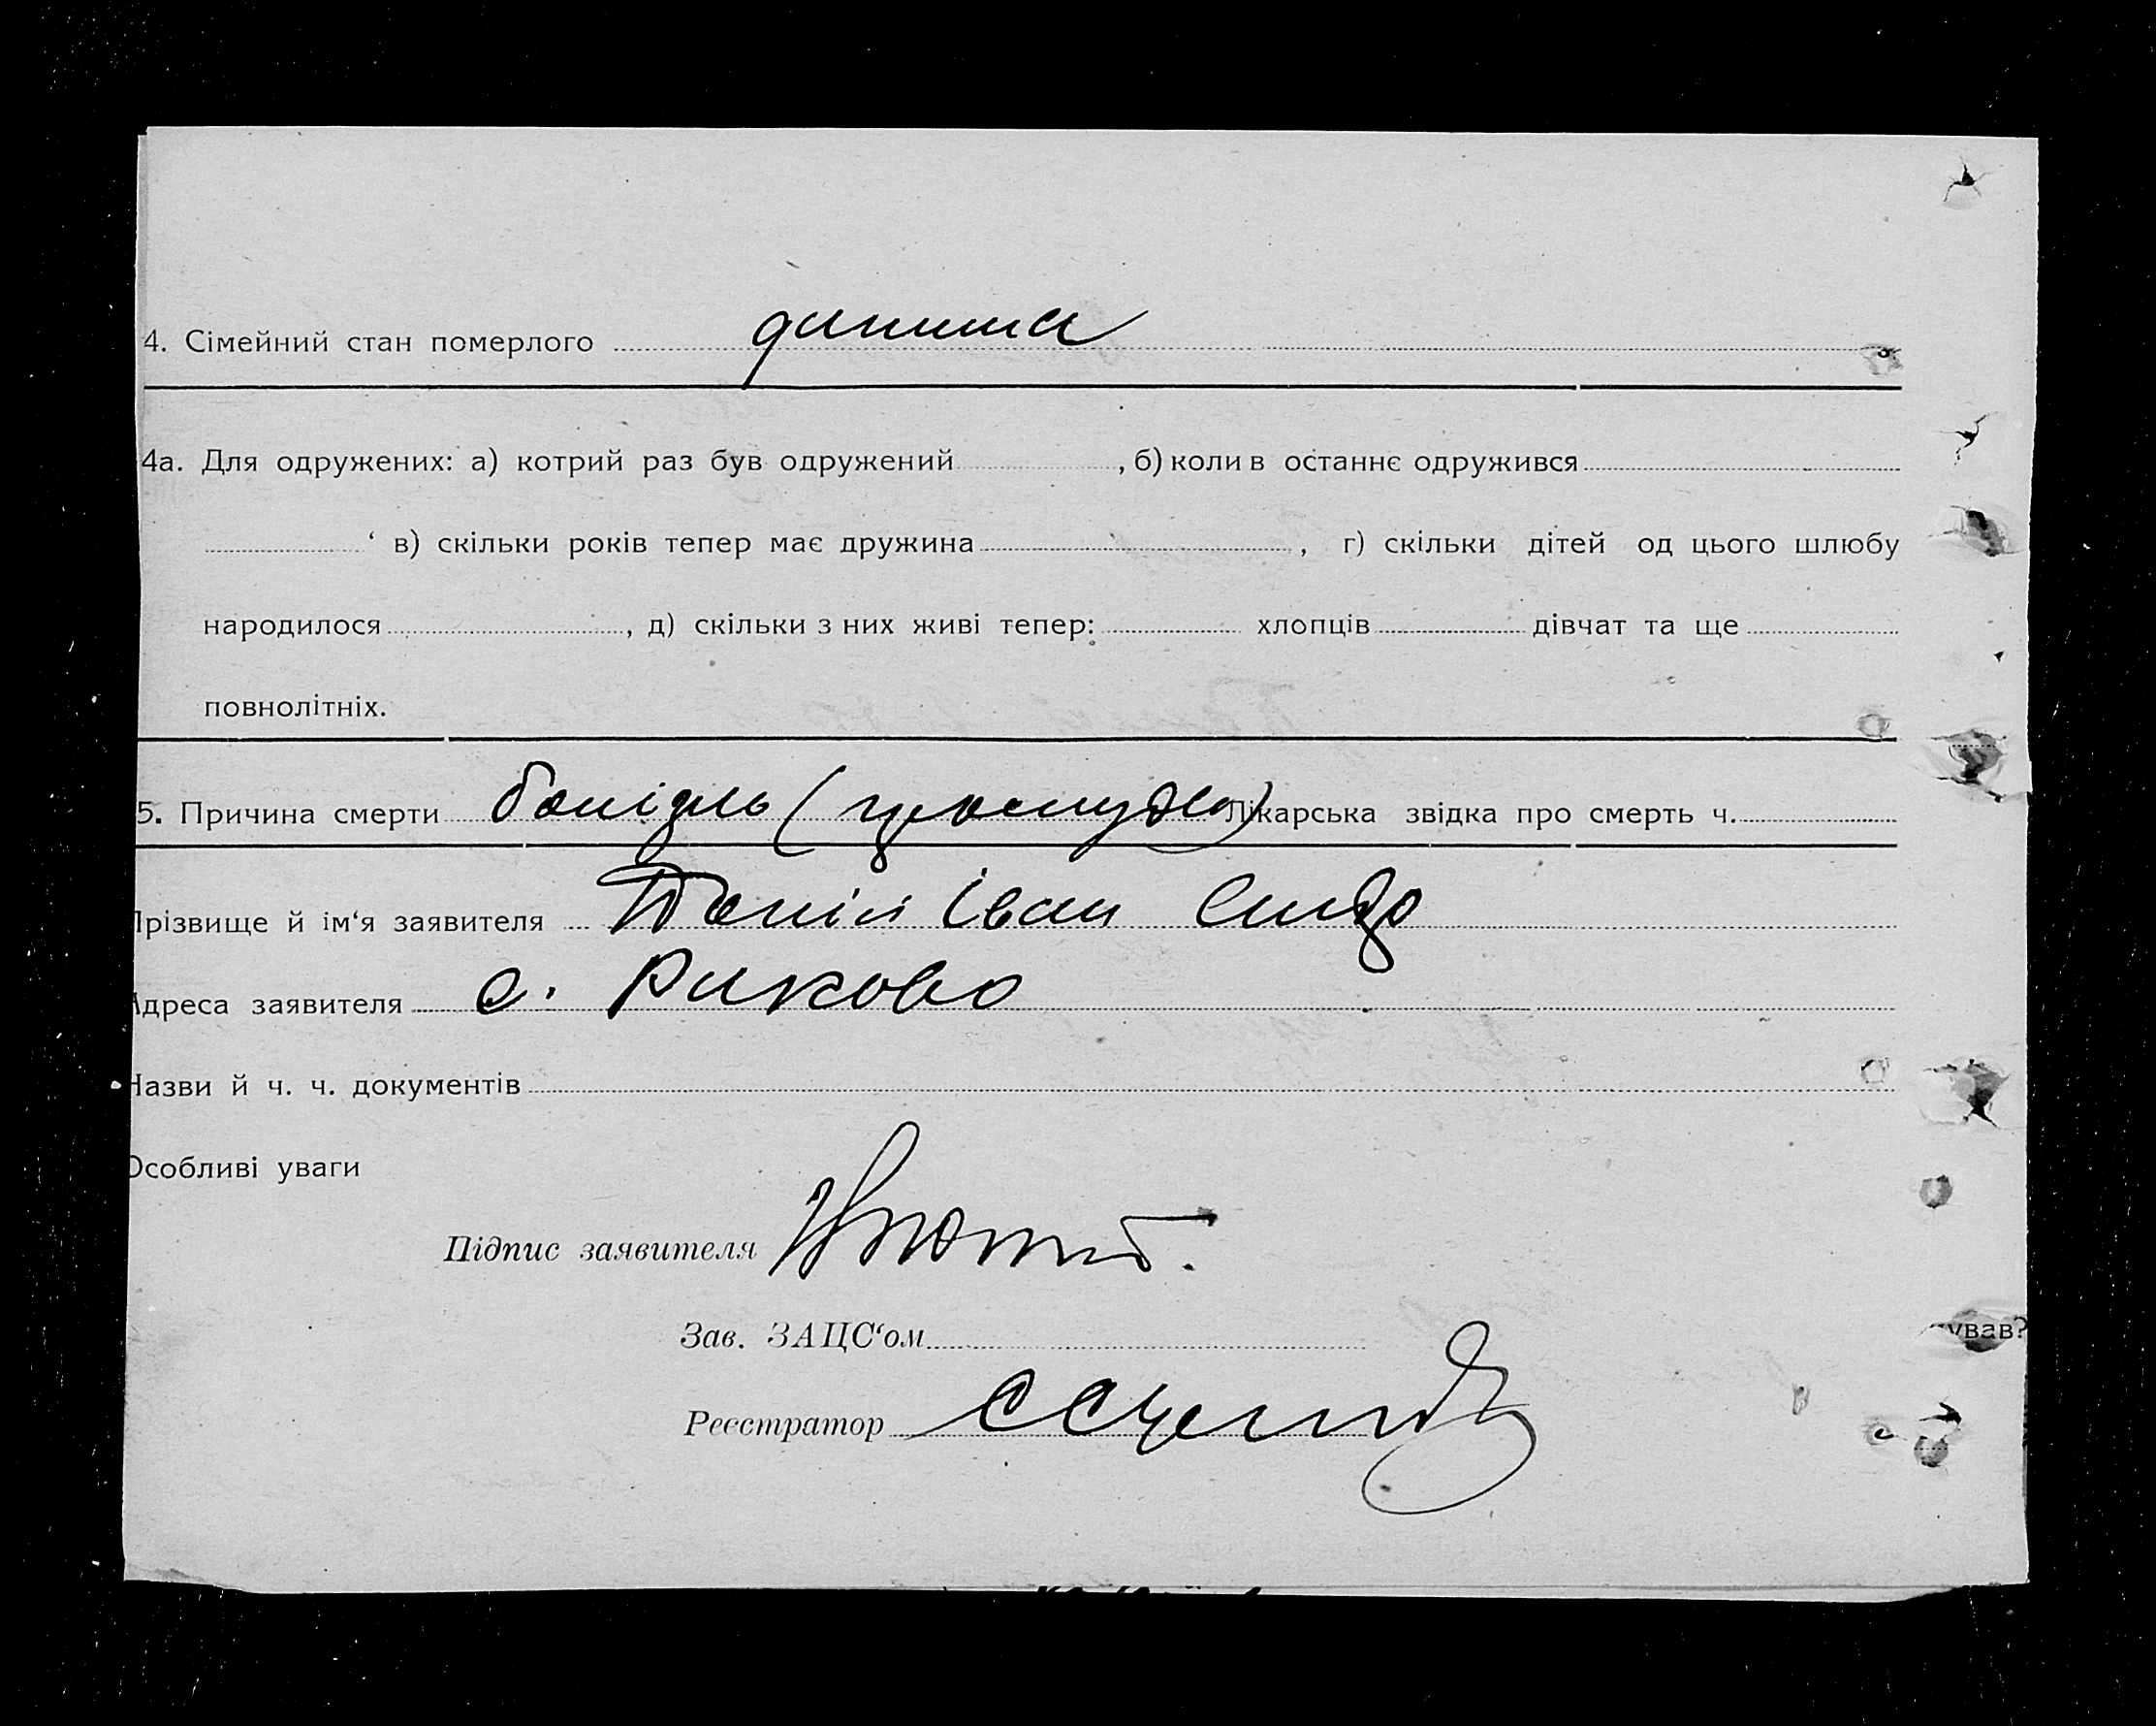 4. Сімейний стан померлого дитина
4а. Для одружених: а) котрий раз був одружений , б) коли в останнє одружився
‘ в) скільки років тепер має дружина , г) скільки дітей од цього шлюбу
народилося , д) скільки з них живі тепер: хлопців дівчат та ще
повнолітніх.
5. Причина смерти Лікарська звідка про смерть ч.
Прізвище й ім‘я заявителя Іван
Адреса заявителя с. Риково
Назви й ч. ч. документів
Особливі уваги
Підпис заявителя
Зав. ЗАЦС‘ом
ував?
Реєстратор